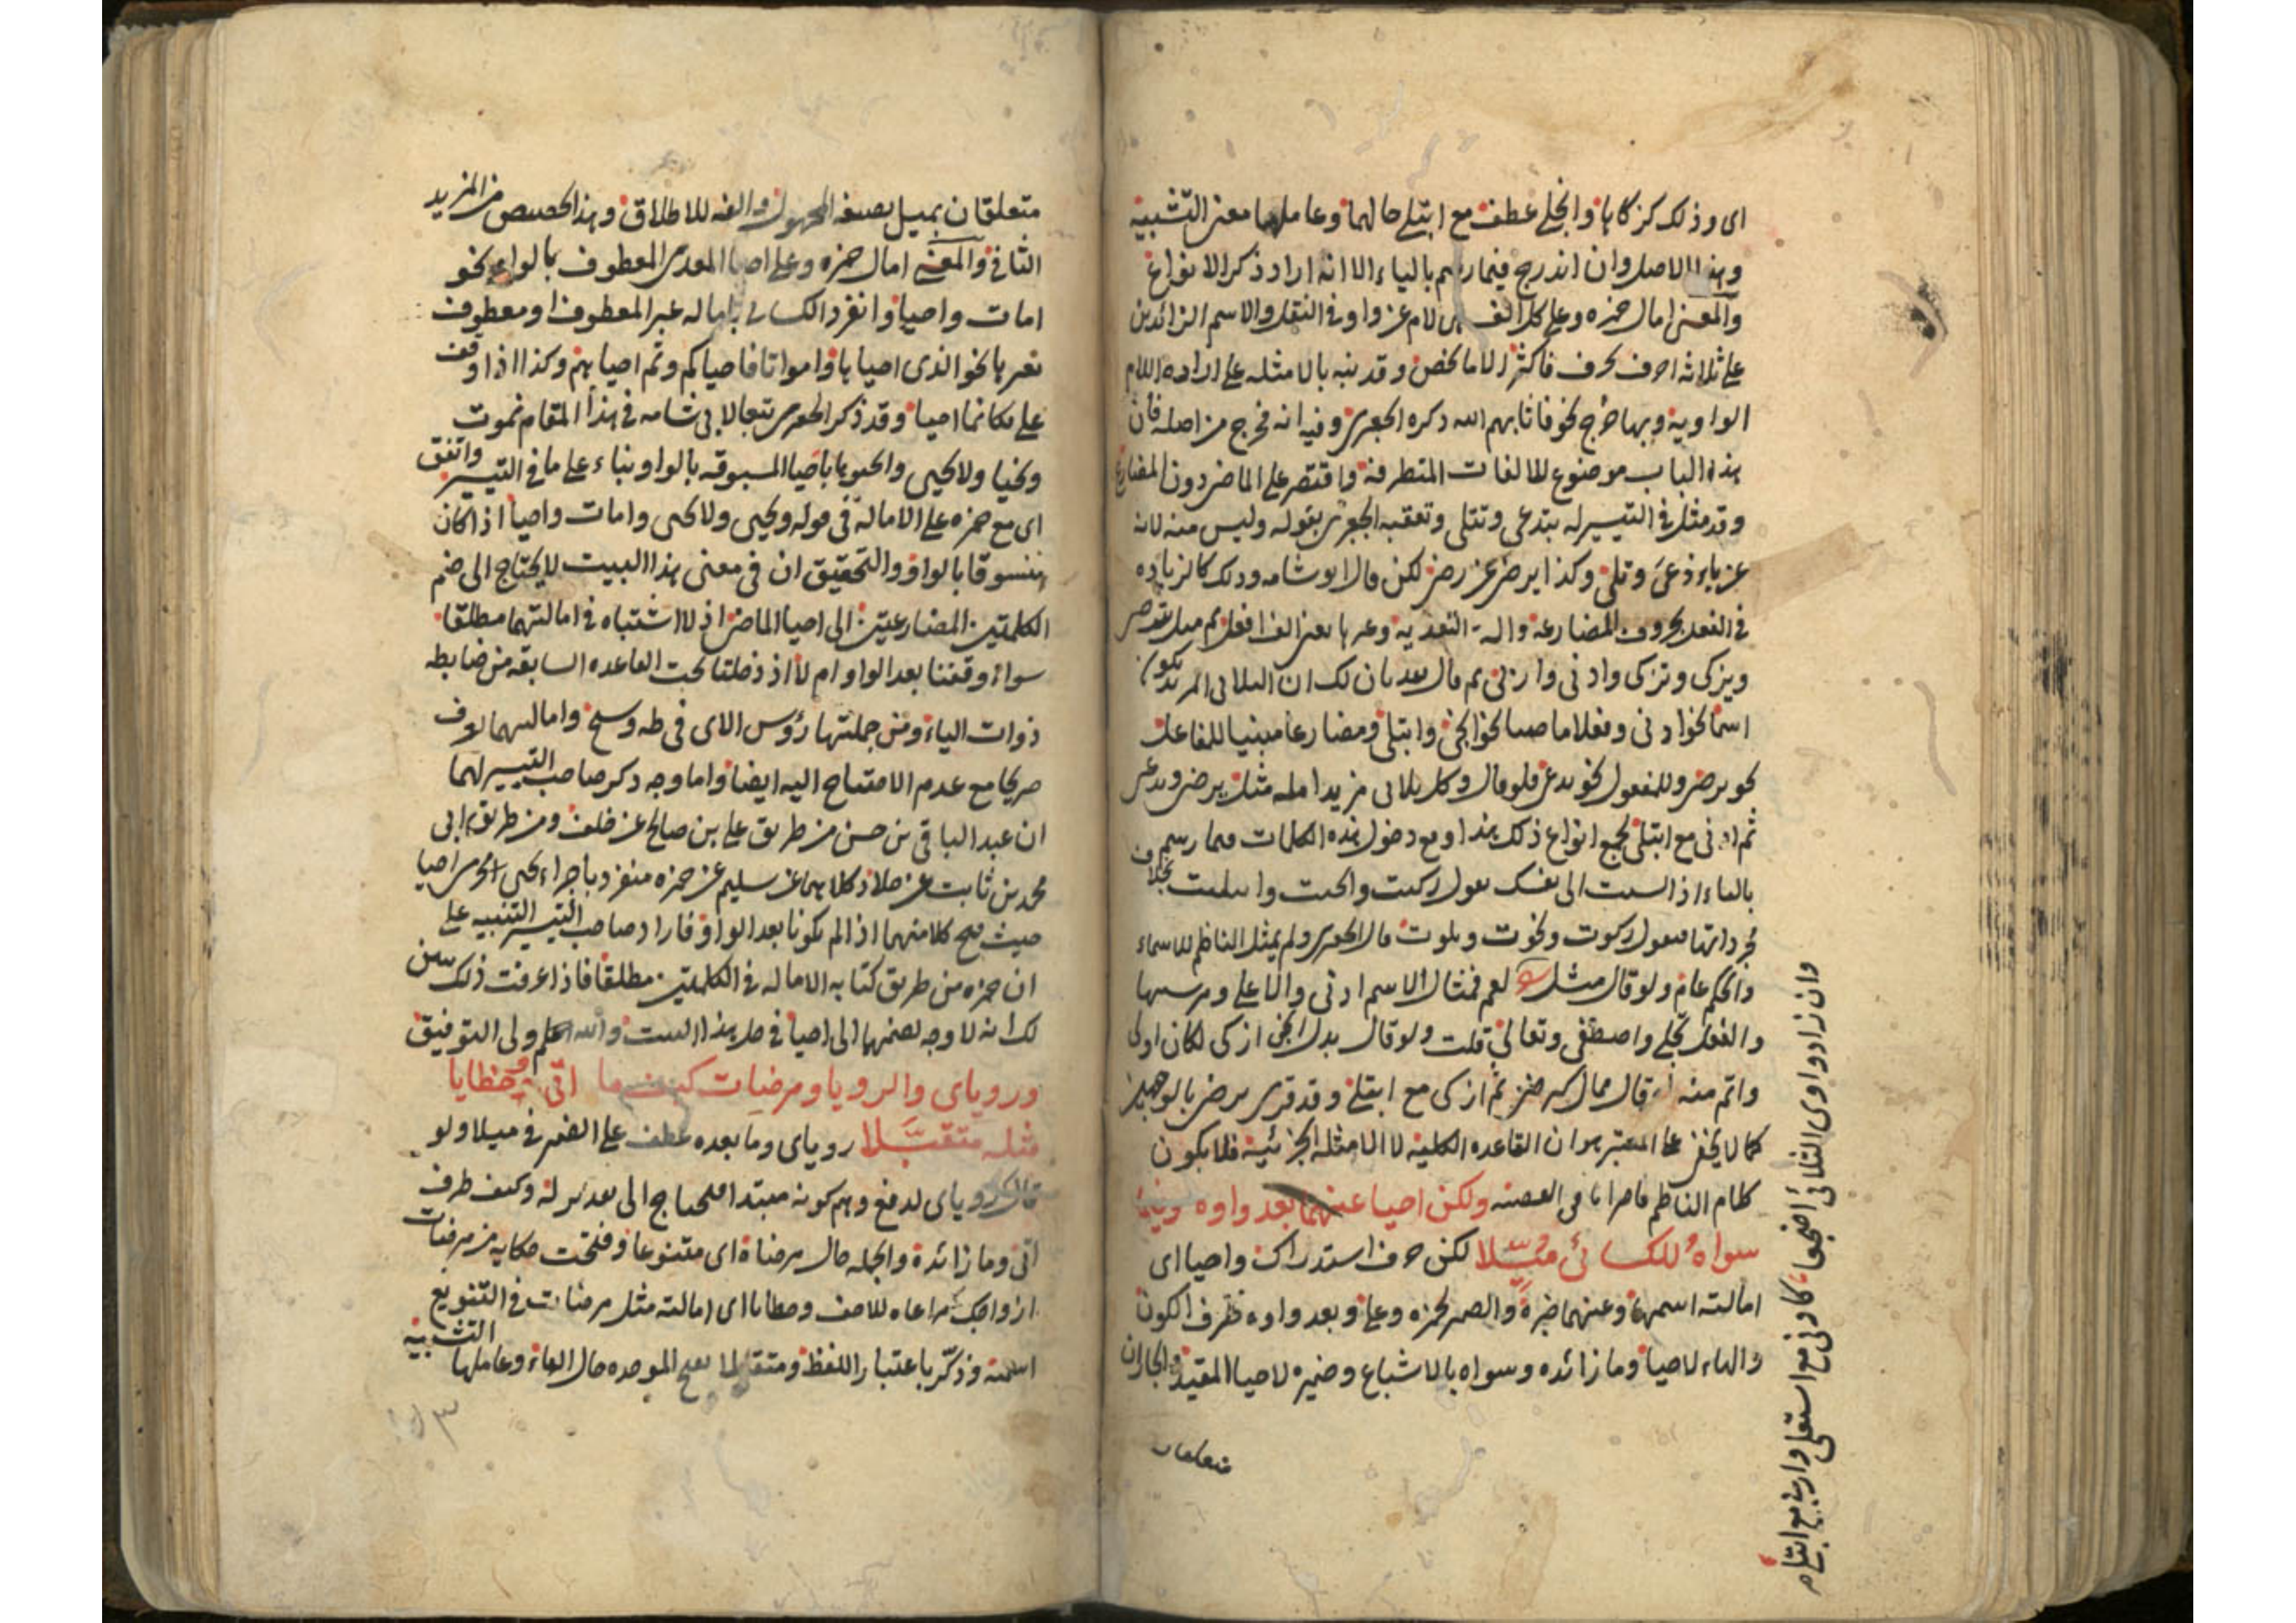 اى وذلك كزكاها وانجلى عطف مع ابتلى حالهما وعاملهما معنى التشبيه
وهذا الاصل وان اندرج فيما رسم بالياء الا انه اراد ذكر الانواع
والمعنى امال حمزه وعلى كل الف لام عن واو فى الفعل والاسم الزائدين
على ثلاثه احرف بحرف فاكثر لا ماضحض وقد نبه بالامثله على ارادة اللام
الواويه وبها خرج نحو فاثابهم الله ذكره الجعبرى وفيه انه خرج من اصله فان
هذا الباب موضوع للالفات المتطرفه واقتصر على الماضى دون المضارع
وقد مثل فى التيسير له بتدعى وتتلى وتعقبه الجعبرى بقوله وليس منه لانه
عن ياء دعى وتلى وكذا يرضى عن رضى لكن قال ابو شامه وذلك كالزياده
فى الفعل بحروف المضارعه والة التعديه وغيرها
ويزكى وتزكى وادنى واربى ثم قال بعد بان لك ان الثلاثى المزيد يكون
اسما نحو ادنى وفعلا ماضيا نحو انجى وابتلى ومضارعا مبنيا للفاعل
نحو يرضى وللمفعول نحو يدعى فلو قال وكل ثلاثى مزيد امله مثل يرضى ويدعى
ثم ادنى مع ابتلى لجمع انواع ذلك هذا ومع دخول هذه الكلمات فيما رسم
بالياء اذا نسبت الى نفسك تقول زكيت وانجيت وابتليت بخلاف
مجرداتها فتقول زكوت ونجوت وبلوت قال الجعبرى ولم يمثل الناظم للاسماء
والحكم عام ولو قال مثل لعم فمثال الاسم ادنى والاعلى ومرسيها
والفعل تجلى واصطفى وتعالى قلت ولو قال بدل انجى ازكى لكان اولى
واتم منه قال كيرضى ثم ازكى مع ابتلى وقد قرى يرضى بالوجهين
كما لا يخفى على المعتبر هو ان القاعده الكليه لا الامثله الجزئيه فلا يكون
كلام الناظم قاصرا فى القصه ولكن احيا عنهما بعد واوه وفيما
سواه للكسائى ميلا لكن حرف استدراك واحيا اى
امالته اسمها وعنهما خبره والضمير لحمزه وعلى وبعد واوه ظرف الكون
والهاء لاحيا وما زائده وسواه بالاشباع وضميره لاحيا المقيد والجاران
متعلقان
وان زاد واوى الثلاثى اضجعا كادنى مع استعلى واربى مع ابتلى م
متعلقان بميل بصيغه المجهول والفه للاطلاق وهذا تخصيص من المزيد
الثانى والمعنى امال حمزه وعلى احيا المعدى المعطوف بالواو نحو
امات واحيا وانفرد الكسائى بامالة غير المعطوف او معطوف
بغيرها نحو الذى احياها وامواتا فاحياكم وثم احياهم وكذا اذا وقف
على فكانما احيا وقد ذكر الجعبرى تبعا لابى شامه فى هذا المقام نموت
ونحيا ولا يحيى والحقوها باحيا المسبوقه بالواو بناء على ما فى التيسير واتفق
اى مع حمزه على الاماله فى قوله ويحيى ولا يحيى وامات واحيا اذا كان
منسوقا بالواو والتحقيق ان فى معنى هذا البيت لا يحتاج الى ضم
الكلمتين المضارعتين الى احيا الماضى اذ لا اشتباه فى امالتهما مطلقا
سواء وقفنا بعد الواو ام لا اذ دخلتا تحت القاعده السابقه من ضابطه
ذوات الياء ومن جملتها رؤس الاى فى طه وسبح وامالتهما تعرف
صريحا مع عدم الاحتياج اليه ايضا واما وجه ذكر صاحب التيسير لهما
ان عبد الباقى بن حسن من طريق على بن صالح عن خلف ومن طريق ابى
محمد بن ثابت عن خلاد كلاهما عن سليم عن حمزه منفرد باجراء يحيى مجرى احيا
حيث فتح كلا منهما اذا لم يكونا بعد الواو فاراد صاحب التيسير التنبيه على
ان حمزه من طريق كتابه الاماله فى الكلمتين مطلقا فاذا عرفت ذلك تبين
لك انه لا وجه لضمهما الى احيا فى حل هذا البيت والله اعلم ولى التوفيق
ورؤياى والرؤيا ومرضات كيف ما اتى وخطايا
مثله متقبلا روياى وما بعده عطف على الضمير فى ميلا ولو
قال كروياى لدفع وهم كونه مبتدا فلا يحتاج الى تقدير له وكيف ظرف
اتى وما زائدة والجمله حال مرضاة اى متنوعا وفتحت حكايه من مرضات
ازواجك مراعاه للاصف وخطايا اى امالته مثل مرضات فى التنويع
اسميه وذكر باعتبار اللفظ ومتقبلا بفتح الموحده حال الهاء وعاملها التشبيه
١٥٣